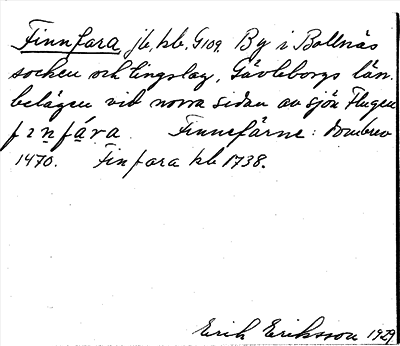 Finnfara jb, kb. G109. By i Bollnäs
socken och tingslag, Gävleborgs län.
belägen vid norra sidan av sjön Flugen
fɪnfára. Finnefärne: dombrev
1470. Finfara kb 1738.
Erik Eriksson 1929